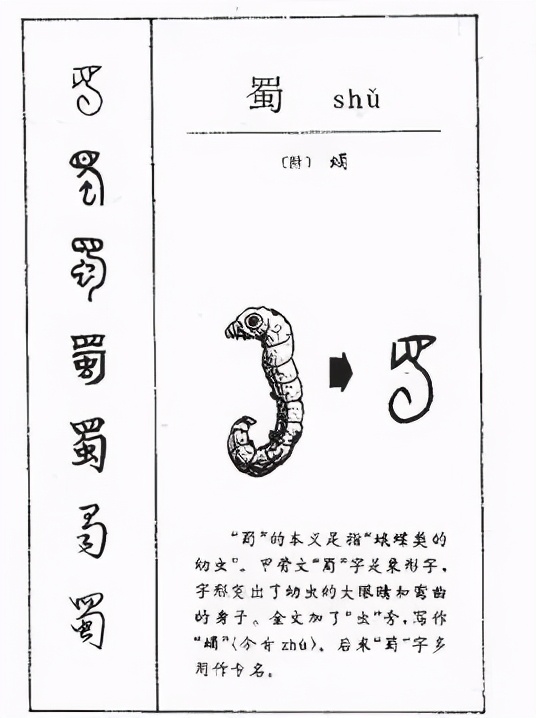 蜀 shǔ
〔附〕 蠋
“蜀”的本义是指“蛾蝶类的
幼虫”。甲骨文“蜀”字是象形字，
字形突出了幼虫的大眼睛和弯曲
的身子。金文加了“虫”旁，写作
“蠋”（今音zhú）。后来“蜀”字多
用作 名。
蜀
蜀